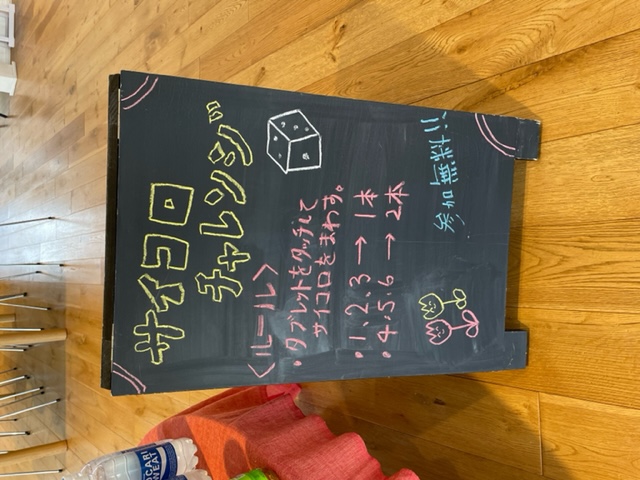 サイコロ
チャレンジ
<ルール>
・タブレットをタッチして
サイコロをまわす。
・1.2.3 → 1本
・4.5.6 → 2本
参加無料!!
OCARI
WEAT